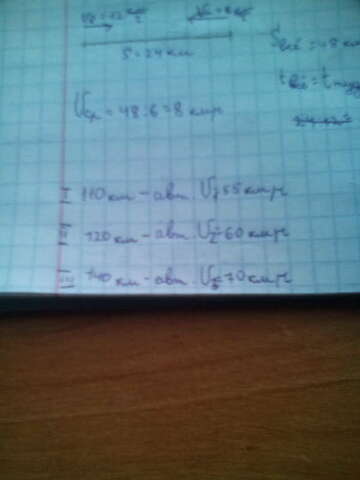 V₁=12 км/ч
S=24 км
Sвсё=48 км
tвсё=t
Vср=48:6=8 км/ч
I 110 км-авт. V₁=55 км/ч
II 120 км-авт. V₂=60 км/ч
III 140 км-авт. V₃=70 км/ч